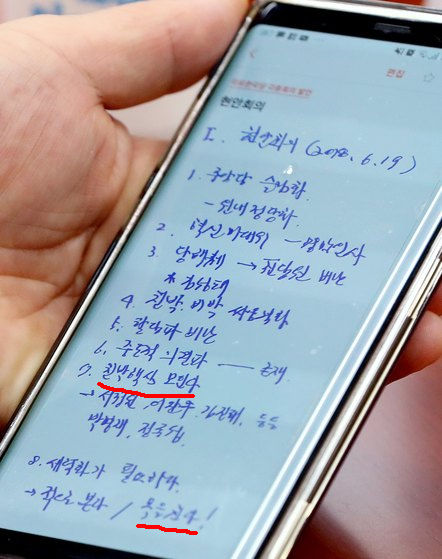 편집
자유한국당 발언
현안회의
I. 현안회의 (2018. 6. 19)
1. 중앙당 슬림화
- 원내정당화
2. 혁신비대위 - 외부인사
3. → 비난
4. 친박, 비박 싸움격화
5. 비난
6.
7. 친박핵심 모인다
→ 서청원, 이장우, 김진태, 등등
박명재, 정종섭
8. 세력화가 필요하다.
→ 적으로 본다 / 목을 친다!